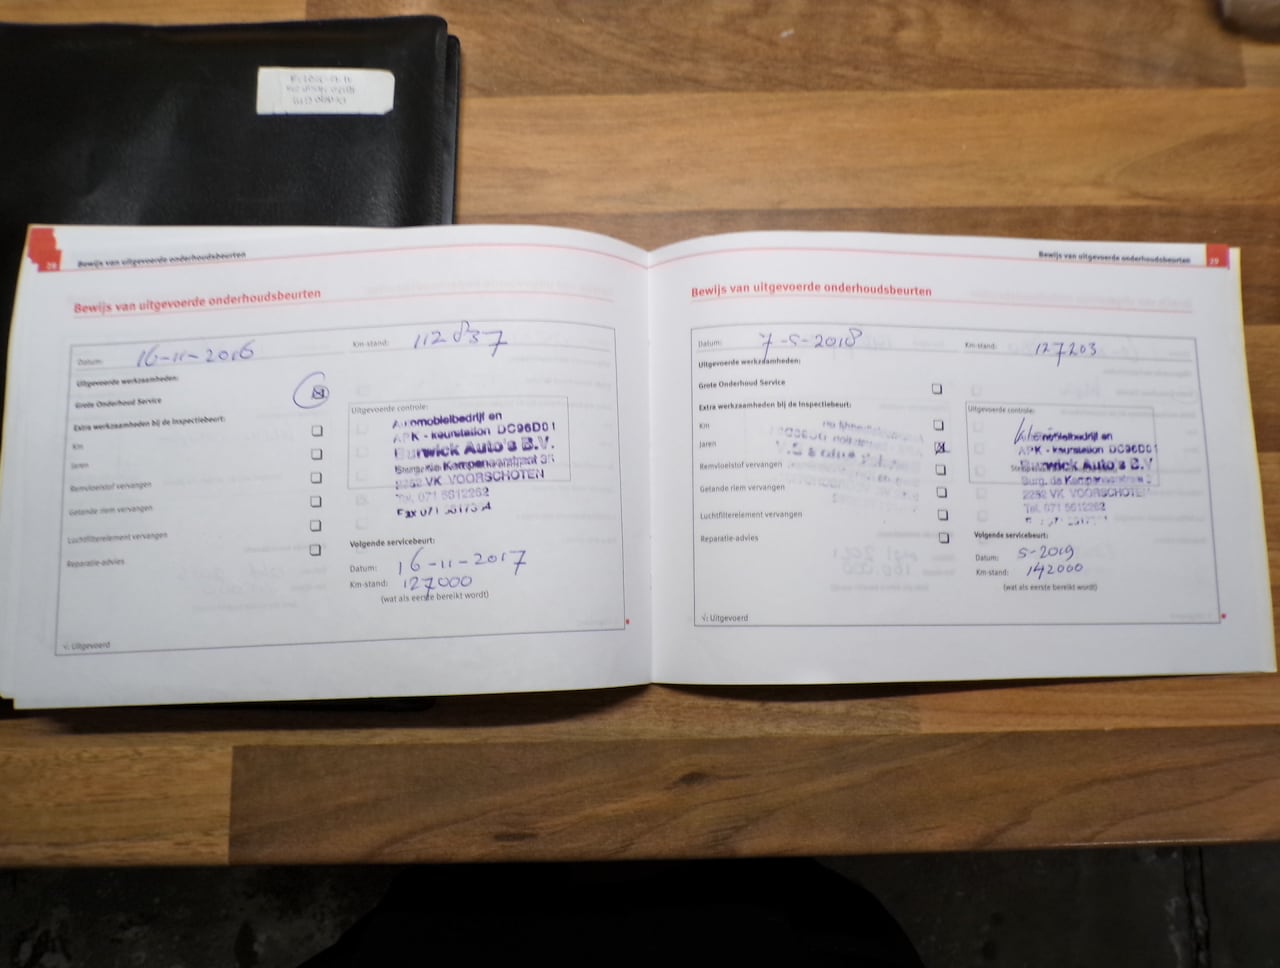 28
Bewijs van uitgevoerde onderhoudsbeurten
Bewijs van uitgevoerde onderhoudsbeurten
Datum: 16-11-2016
Km-stand: 112837
Uitgevoerde werkzaamheden:
Grote Onderhoud Service
Extra werkzaamheden bij de Inspectiebeurt:
Km
Jaren
Remvloeistof vervangen
Getande riem vervangen
Luchtfilterelement vervangen
Reparatie-advies
Uitgevoerde controle:
Automobielbedrijf en
APK - keurstation DC96D01
Burwick Auto's B.V.
2252 VK VOORSCHOTEN
Tel. 071 5612262
Volgende servicebeurt:
Datum: 16-11-2017
Km-stand: 127000
(wat als eerste bereikt wordt)
√: Uitgevoerd
Bewijs van uitgevoerde onderhoudsbeurten
29
Bewijs van uitgevoerde onderhoudsbeurten
Datum: 7-5-2018
Km-stand: 127203
Uitgevoerde werkzaamheden:
Grote Onderhoud Service
Extra werkzaamheden bij de Inspectiebeurt:
Km
Jaren
Remvloeistof vervangen
Getande riem vervangen
Luchtfilterelement vervangen
Reparatie-advies
Uitgevoerde controle:
Automobielbedrijf en
APK - keurstation DC96D01
Burwick Auto's B.V
Burg. de Kampenaerstraat
2252 VK VOORSCHOTEN
Tel. 071 5612262
Volgende servicebeurt:
Datum: 5-2019
Km-stand: 142000
(wat als eerste bereikt wordt)
√: Uitgevoerd